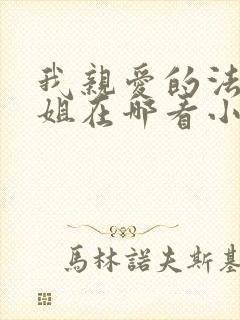 我親愛的法
姐在哪看小
馬林諾夫斯基